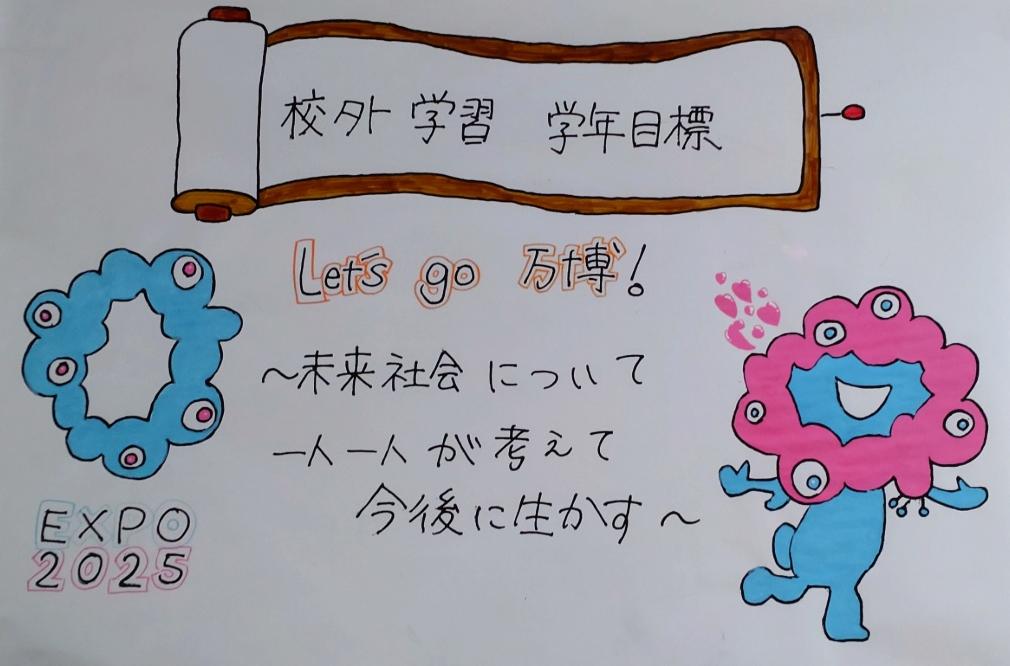 校外学習 学年目標
Let's go 万博!
~未来社会について
一人一人が考えて
今後に生かす~
EXPO
2025